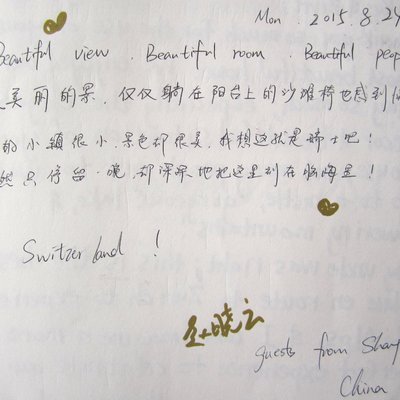 Mon. 2015.8.24
Beautiful view. Beautiful room. Beautiful peop
美丽的景,仅仅躺在阳台上的沙滩椅也感到
的小镇很小,景色却很美,我想这就是瑞士吧!
然只停留一晚,却深深地把这里刻在脑海里!
Switzerland !
晓云
guests from Shang
China